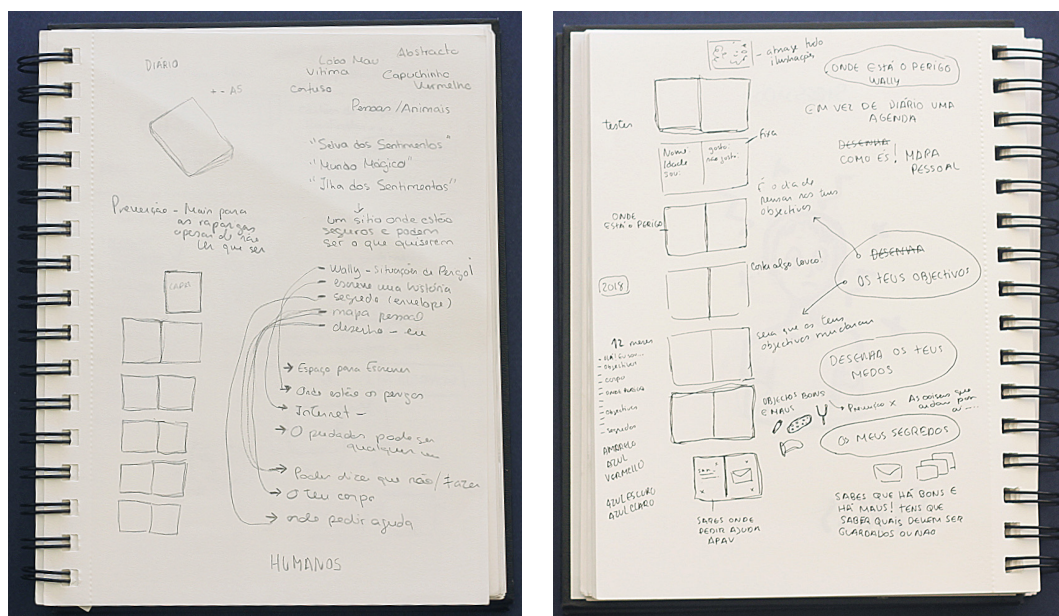 DIARIO
Abstracto
Lobo Mau
Vitima
Capuchinho
Vermelho
Confuso
+- A5
Pessoas/Animais
"Selva dos Sentimentos"
"Mundo Mágico"
"Ilha dos Sentimentos"
um sitio onde estão
seguros e podem
ser o que quiserem
Prevenção - Mais para
as raparigas
apesar de não
ter que ser
CAPA
- Wally - Situações de Perigo!
- escreve uma história
- segredo (envelope)
- mapa pessoal
- desenho - eu
- Espaço para Escrever
Onde estão os perigos
Internet -
O predador pode ser
qualquer um
Poder dizer que não/Fazer
O teu corpo
onde pedir ajuda
HUMANOS
- atmaze tudo
ilustrações
ONDE ESTÁ O PERIGO
WALLY
EM VEZ DE DIÁRIO UMA
AGENDA
testes
fixa
Nome
Idade
sou:
gosto:
não gosto:
DESENHA
COMO ÉS! MAPA
PESSOAL
pensar nos teus
objectivos
ONDE
ESTÁ O PERIGO
DESENHA
OS TEUS OBJECTIVOS
algo louco!
2018
será que os teus
objectivos mudaram
12 meses
- objectivos
- corpo
- objectivos
- segredos
DESENHA OS TEUS
MEDOS
OBJECTOS BONS
E MAUS
Prevenção X As coisas que
OS MEUS SEGREDOS
AMARELO
AZUL
VERMELHO
AZUL ESCURO
AZUL CLARO
SABES ONDE
PEDIR AJUDA
APAV
SABES QUE HÁ BONS E
HÁ MAUS! TENS QUE
SABER QUAIS DEVEM SER
GUARDADOS OU NAO